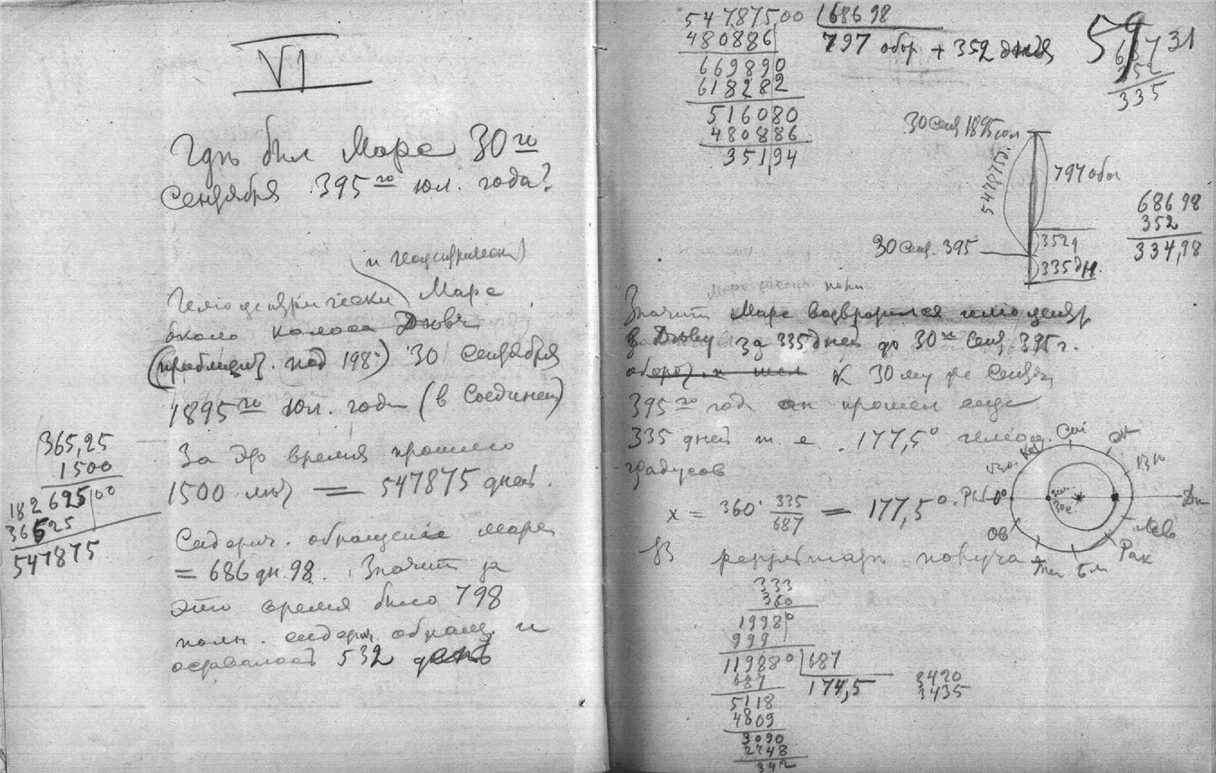 VI
Гдѣ был Марс 30го
Сентября 395го юл. года?
и геоцентрически
Гелиоцентрически Марс
около колоса Дѣвы
(приблизит. под 198°) 30 Сентября
1895го юл. года (в Соединен)
За это время прошло
1500 лѣт = 547875 дней.
365,25
1500
182625|00
36525
547875
Сидерич. обращение марса
= 686 дн. 98. Значит за
это время было 798
полн. сидерич. обращ. и
оставалось 532 день
547875,00 | 686 98
480886 797 обор + 352 дня
669890
618282
516080
480886
351,94
59 31
687
352
335
30 Сент 1895 юл
547875 д.
797 обор
30 Сент. 395
352 д
335 дн.
686 98
352
334,98
Значит Марс возвратился гелиоцентр
в Дѣву за 335 дней до 30го Сент. 395 г.
К 30му же Сент.
395го года он прошел еще
335 дней т е. 177,5° гелиоц.
градусов
x = 360° 335/687 = 177,5°.
В результате получа
Рыб 0°
Ско
Стр
Вѣ
Дѣв
Лева
Рак
Бл
Тел
Ов
333
360
1998°
999
11988° | 687
687 174,5
5118
4809
3090
2748
342
3420
3435